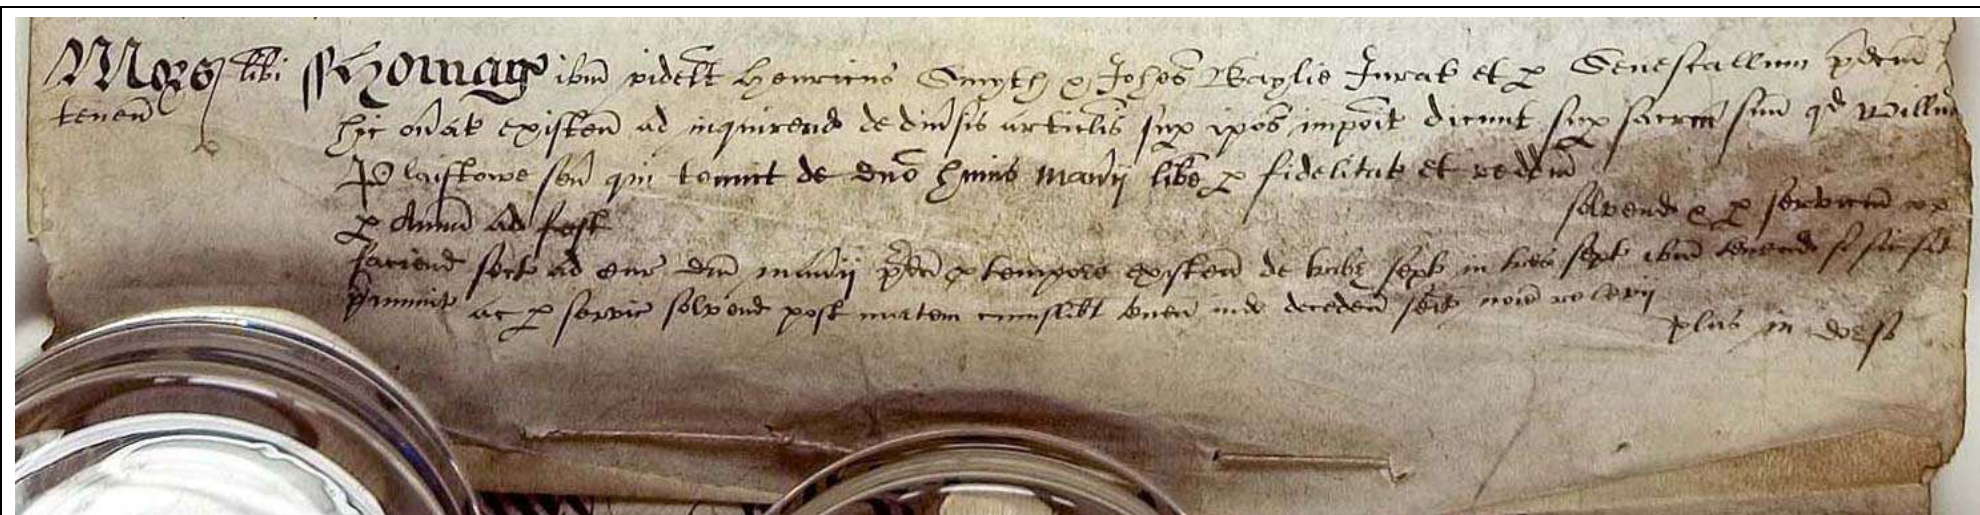 Mors libi
tenen
Homag ibm videlt Henricus Smyth & Johes Baylie Jurat et p Senescallum pdcm
hic onat existen ad inquirend de divsis articlis sup ipos impoit dicunt sup sacrm suu qd Willus
Plaistowe sen qui tenuit de dno huius manii libe p fidelitat et redditu
solvend & p servicium
p Annu ad fest
faciend sect ad cur dni manii pdci p tempore existen de tribz sept in tres sept ibm tenend si sic sit
pmunit ac p servic solvend post mortem cuiuslibt tenen inde deceden noie relevii
plus in dorso